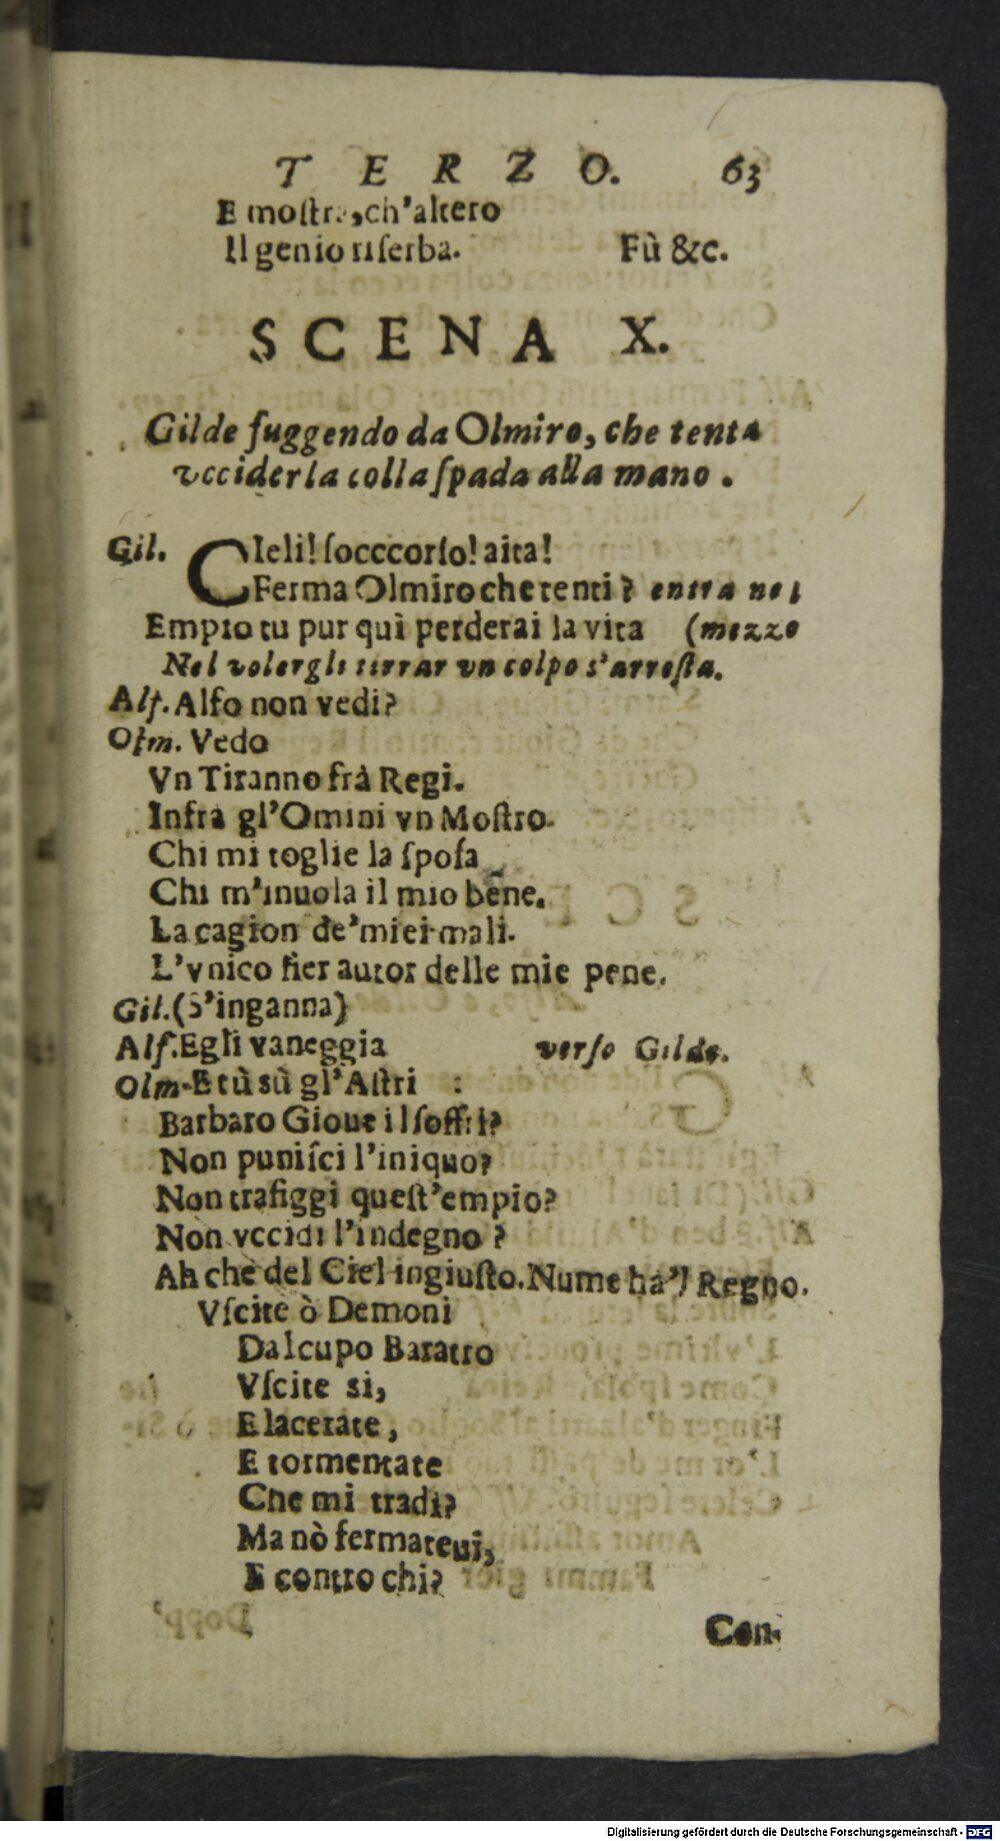 TERZO. 63
E moſtra, ch'altero
Il genio riſerba. Fù &c.
SCENA X.
Gilde fuggendo da Olmiro, che tenta
vcciderla colla ſpada alla mano.
Gil. CIeli! ſocccorſo! aita!
Ferma Olmiro che tenti? entra nel
Empio tu pur quì perderai la vita (mezzo
Nel volergli tirrar vn colpo s'arreſta.
Alf. Alfo non vedi?
Olm. Vedo
Vn Tiranno frà Regi.
Infrà gl'Omini vn Moſtro.
Chi mi toglie la ſpoſa
Chi m'inuola il mio bene.
La cagion de'miei mali.
L'vnico fier autor delle mie pene.
Gil. (S'inganna)
Alf. Egli vaneggia verſo Gilde.
Olm. E tù sù gl'Aſtri :
Barbaro Gioue il ſoffri?
Non puniſci l'iniquo?
Non trafiggi queſt'empio?
Non vccidi l'indegno?
Ah che del Ciel ingiuſto. Nume hà'l Regno.
Vſcite ò Demoni
Dal cupo Baratro
Vſcite si,
E lacerate,
E tormentate
Che mi tradì?
Ma nò fermateui,
E contro chi?
Con-
Digitalisierung gefördert durch die Deutsche Forschungsgemeinschaft - DFG